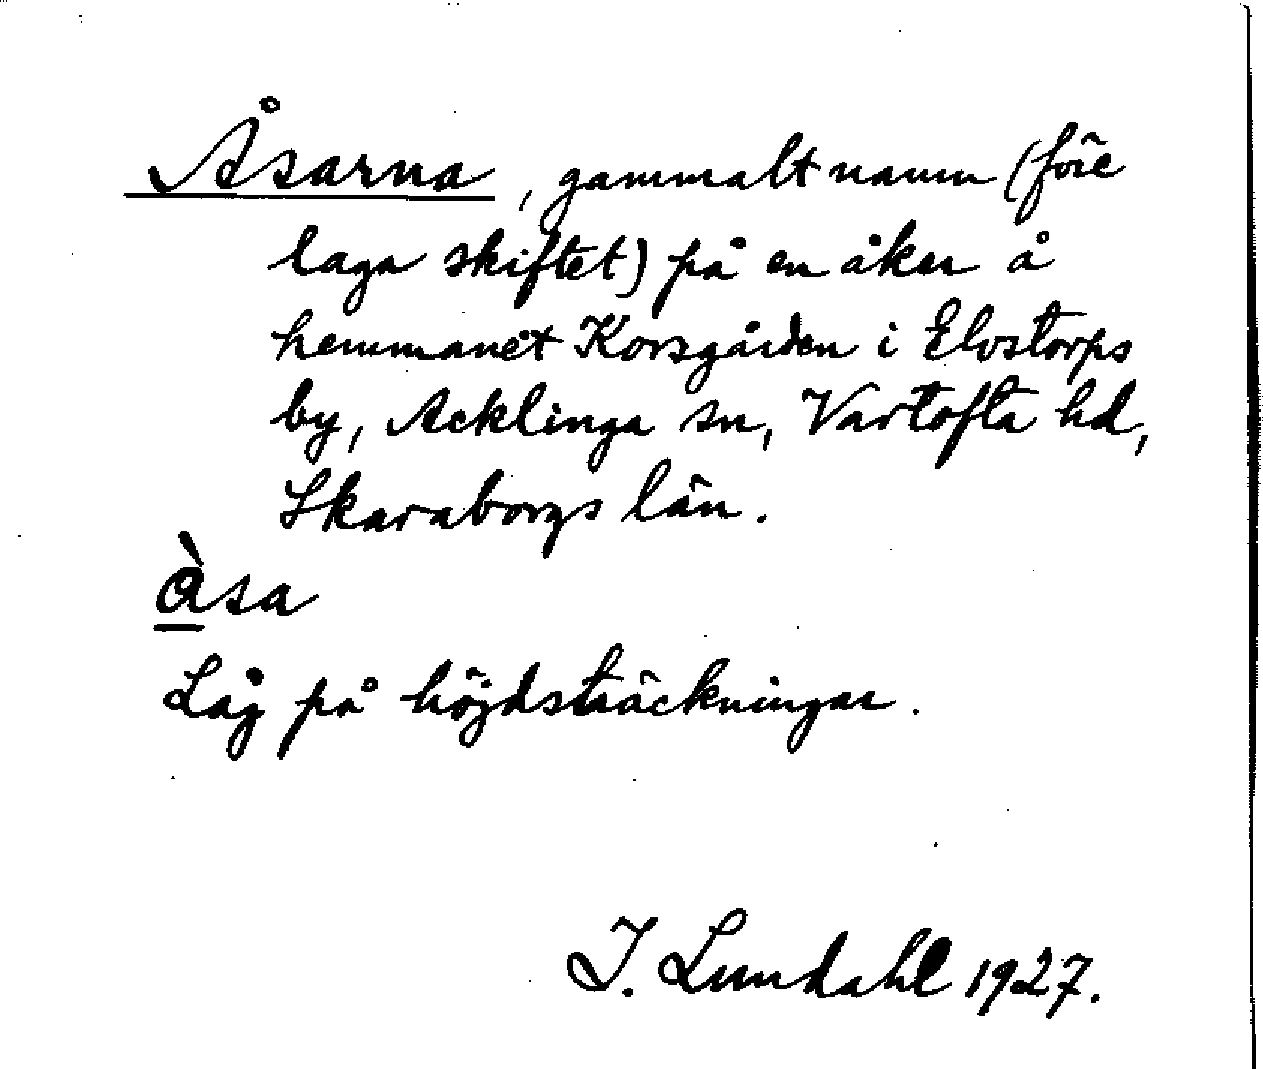 Åsarna, gammalt namn (före
laga skiftet) på en åker å
hemmanet Korsgården i Elvstorps
by, Acklinga sn, Vartofta hd,
Skaraborgs län.
àsa
Låg på höjdsträckningar.
I. Lundahl 1927.